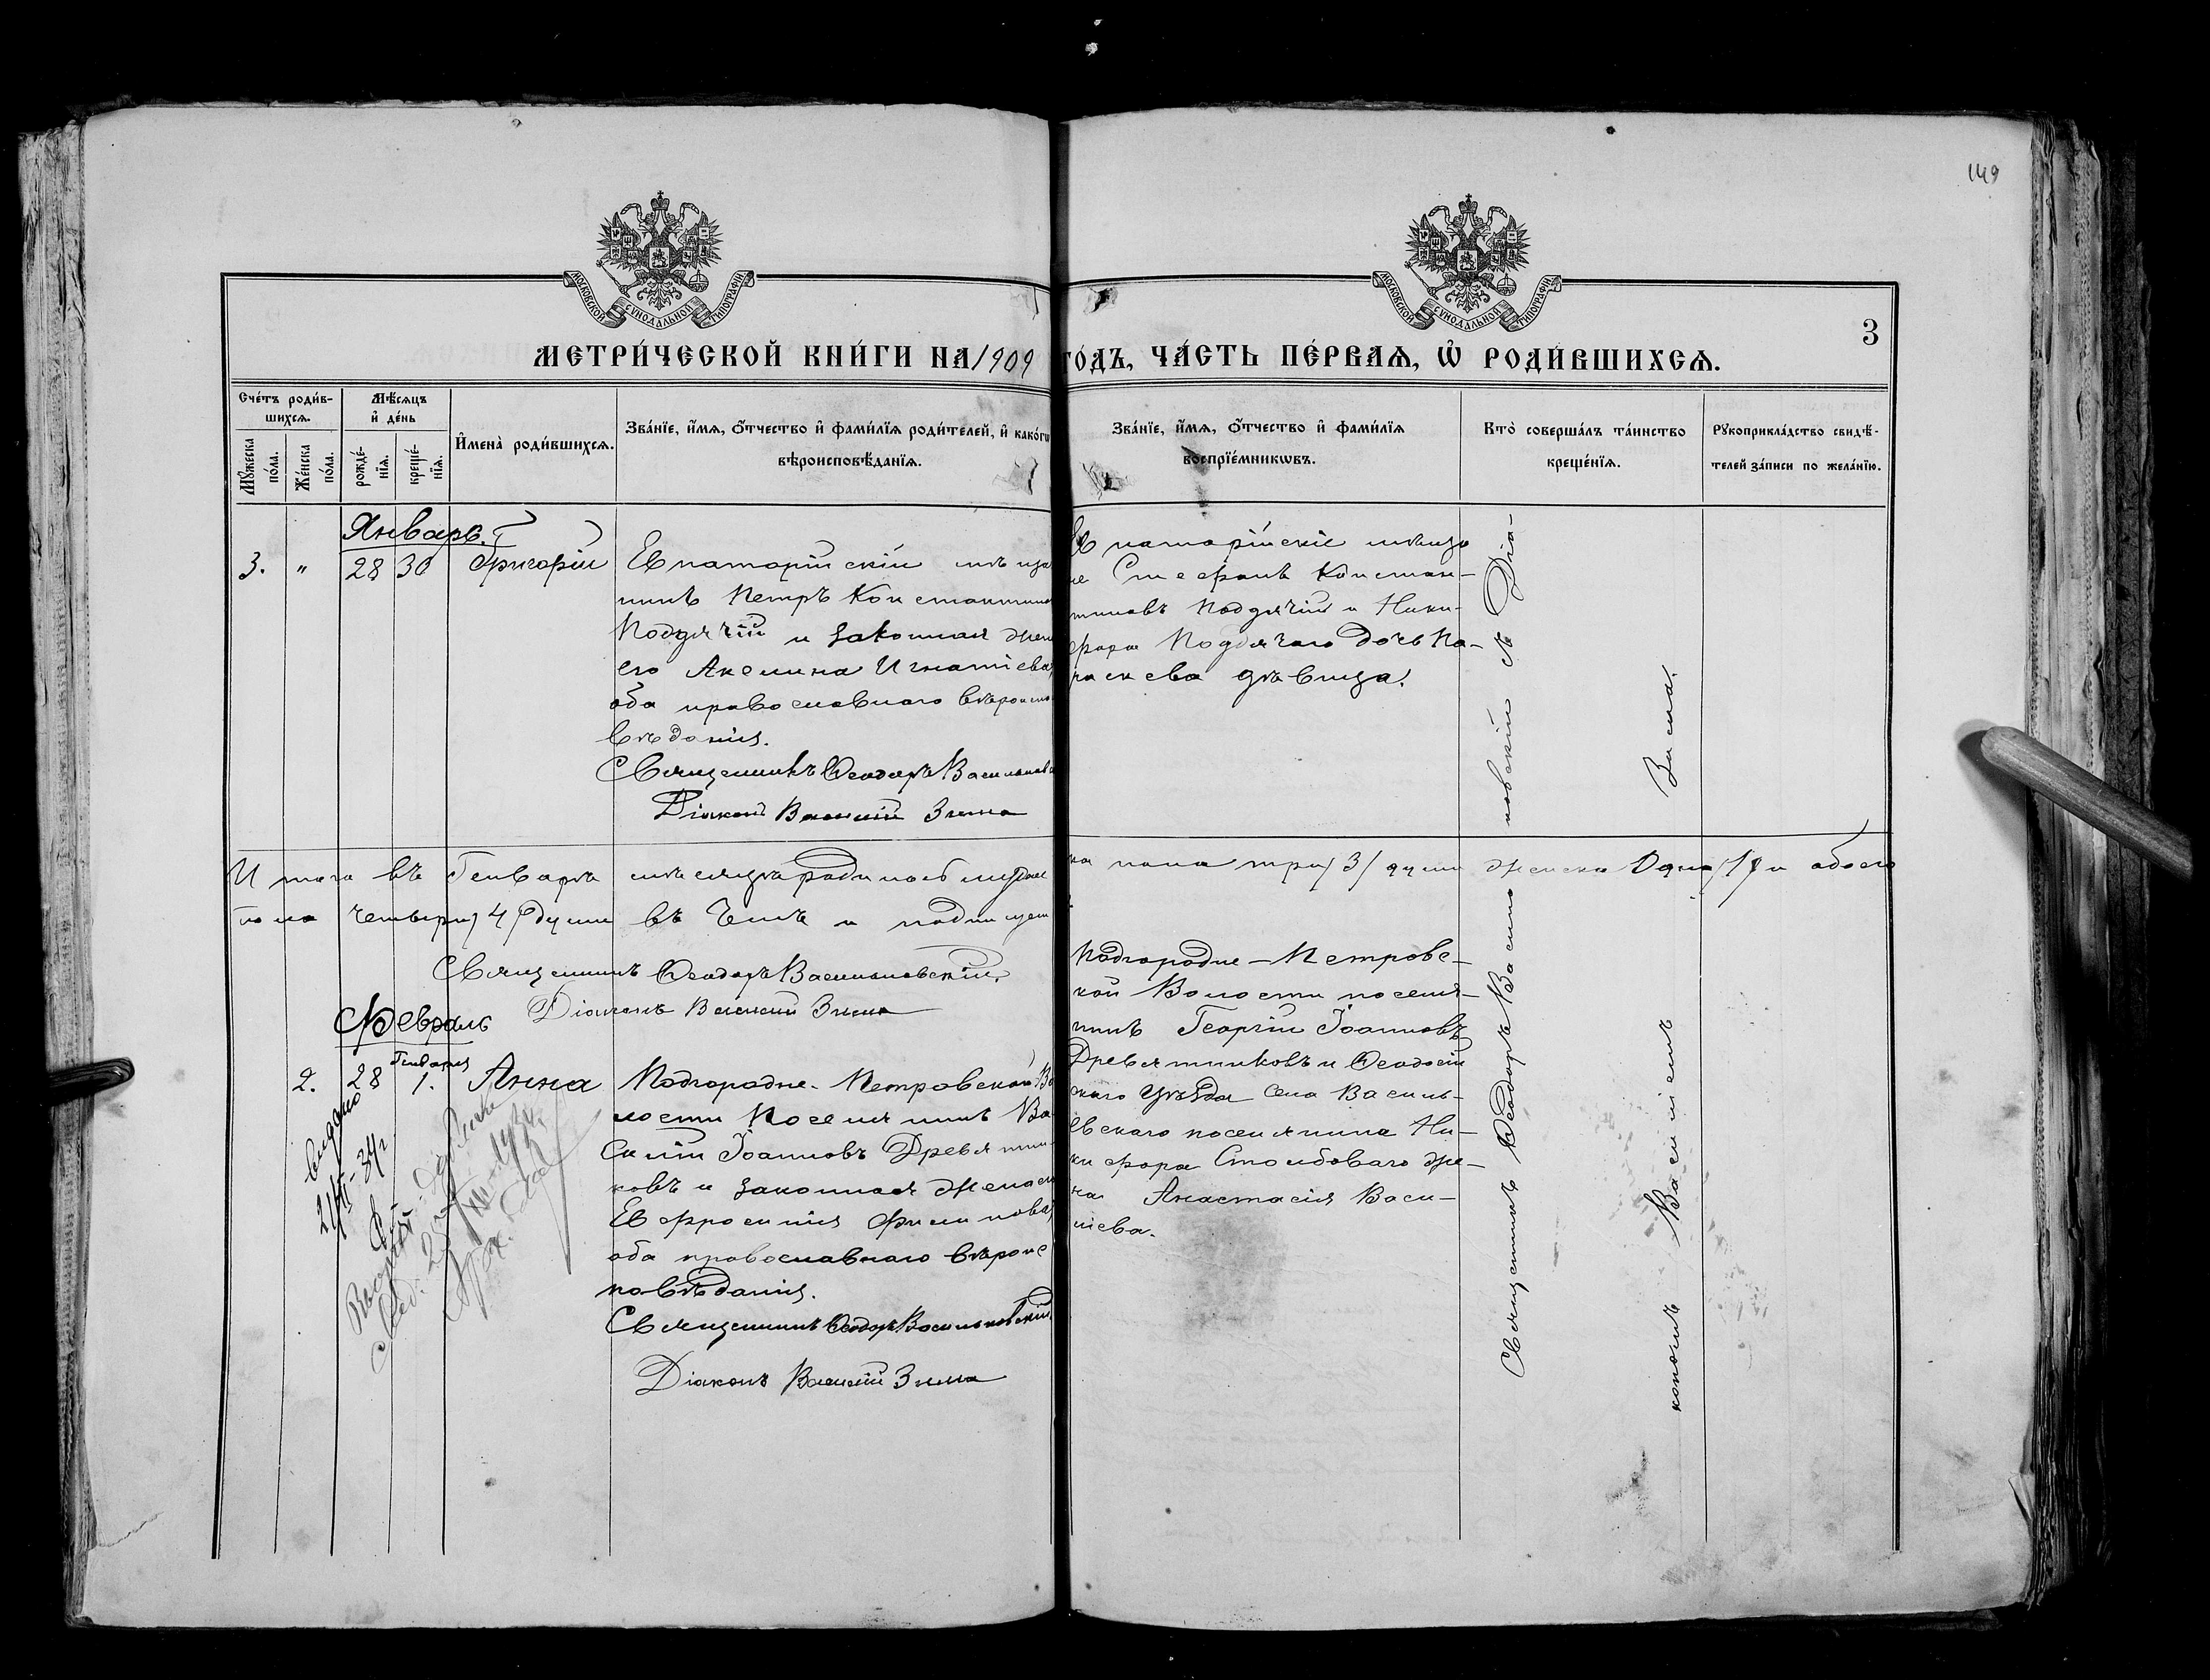 149
МОСКОВСКОЙ СУНОДАЛЬНОЙ ТИПОГРАФІИ
МОСКОВСКОЙ СУНОДАЛЬНОЙ ТИПОГРАФІИ
3
МЕТРИ́ЧЕСКОЙ КНИ́ГИ НА 1909 ГО́ДЪ, ЧА́СТЬ ПЕ́РВАѦ, Ѡ҆ РОДИ́ВШИХСѦ.
Сче́тъ роди́в-
шихсѧ.
Мꙋ́жеска по́ла.
Же́нска по́ла.
Мѣ́сѧцъ
и҆ де́нь
рожде́-
нїѧ.
креще́-
нїѧ.
И҆мена̀ роди́вшихсѧ.
Зва́нїе, и҆́мѧ, ѻ҆́тчество и҆ фами́лїѧ роди́телей, и҆ како́гѡ
вѣроисповѣ́данїѧ.
Зва́нїе, и҆́мѧ, ѻ҆́тчество и҆ фами́лїѧ
воспрїе́мникѡвъ.
Кто̀ соверша́лъ та́инство
креще́нїѧ.
Рꙋкоприкла́дство свидѣ́-
телей за́писи по жела́нїю.
Январь.
3. " 28 30 Григорій
Евпаторійскій мѣща
нинъ Петръ Константинов
Поддячій и законная жен
его Акелина Игнатіева,
оба православнаго вѣроиспо
вѣданія.
Священникъ Ѳеодоръ Васильковс
Діаконъ Василій Зима
Евпаторійскіе мѣща
не Стефанъ Констан-
тиновъ Поддячій и Ники-
фора Поддячаго дочь Па-
раскева дѣвица.
Итого въ Генварѣ мѣсяцѣ родилось муже
ска пола три /3/ души женска Одна /1/ и обоего
пола четыри /4/ души въ чемъ и подпишем
Священникъ Ѳеодоръ Васильковскій.
Діаконъ Василій Зима
Февраль
Генваря
2. 28 1. Анна
Подгородне-Петровской Во
лости Поселянинъ Ва
силій Іоанновъ Древятни
ковъ и законная жена ег
Ефросинія Филипова,
оба православнаго вѣроис
повѣданія.
Священникъ Ѳеодоръ Васильковскій
Діаконъ Василій Зима
Подгородне-Петровс-
кой Волости поселя-
нинъ Георгій Іоанновъ
Древятниковъ и Ѳеодосій
скаго уѣзда села Василь-
евскаго поселянина Ни-
кифора Столбоваго же-
на Анастасія Васи-
лева.
Священникъ Ѳеодоръ Василь
ковскій и Діа-
конъ Василій
Зима.
выдано